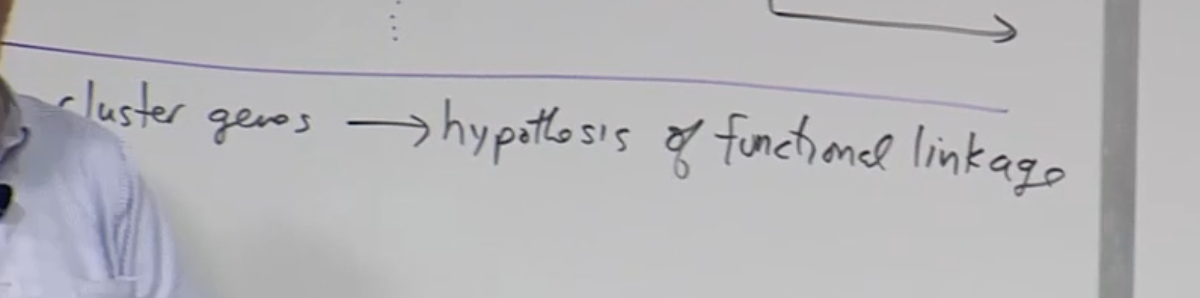 cluster genes → hypothesis of functional linkage